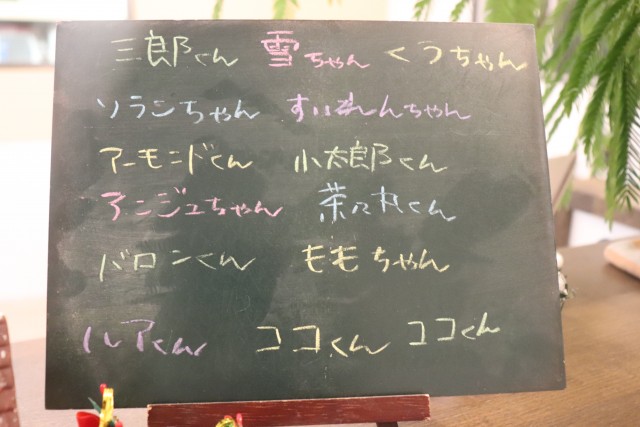 三郎くん 雪ちゃん くうちゃん
ソランちゃん すいれんちゃん
アーモンドくん 小太郎くん
アンジュちゃん 茶々丸くん
バロンくん ももちゃん
ルアくん ココくん ココくん